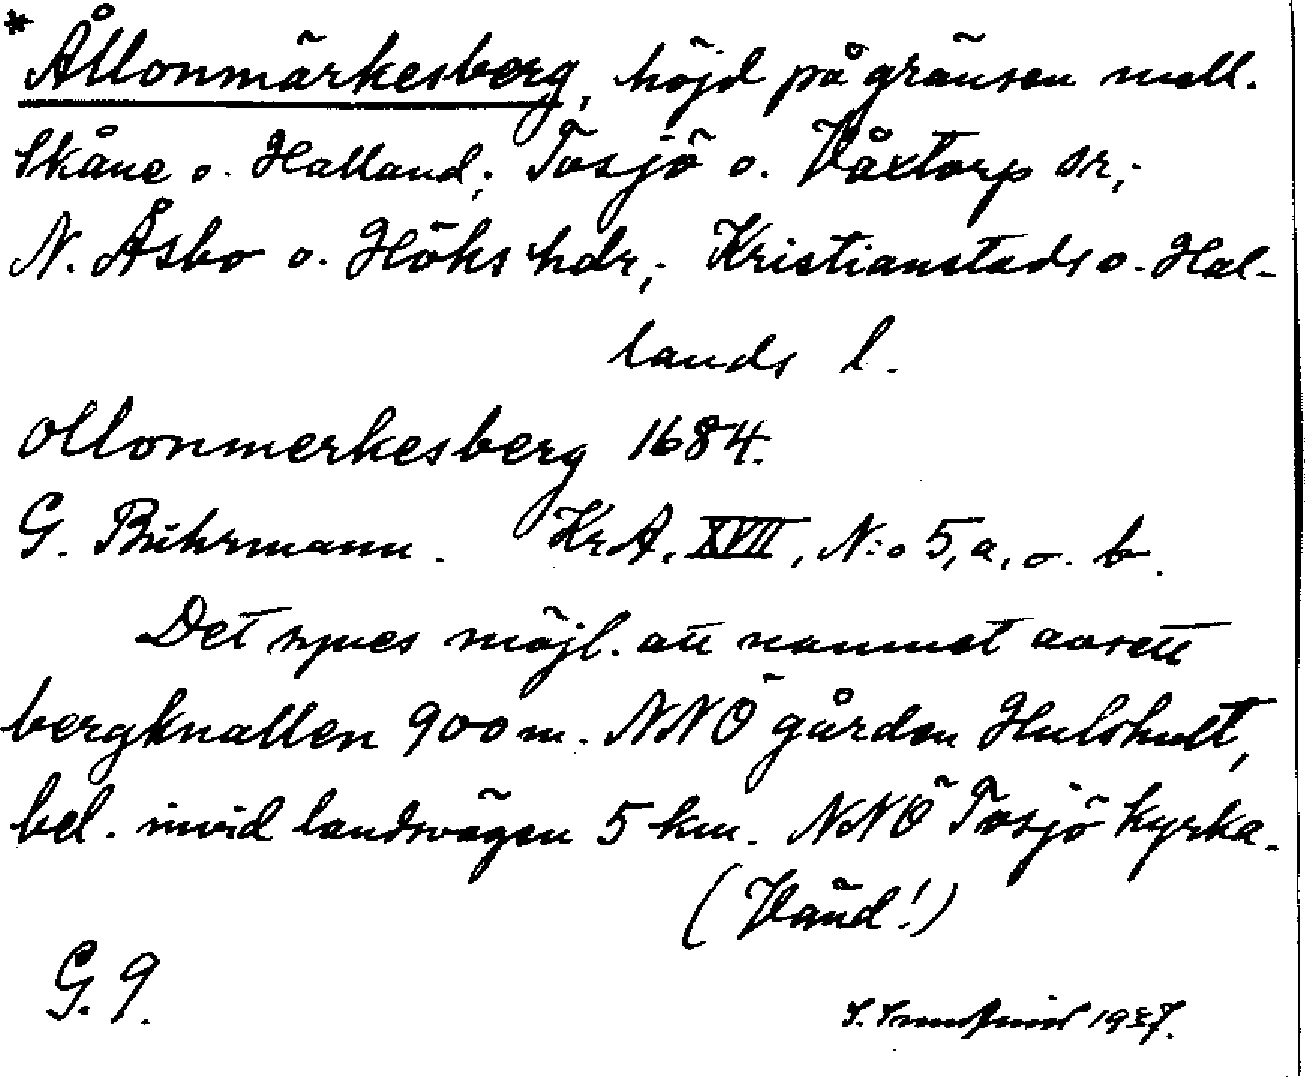 * Ållonmärkesberg, höjd på gränsen mell.
Skåne o. Halland; Tåsjö o. Våxtorp snr;
N. Åsbo o. Höks hdr; Kristianstads o. Hal-
lands l.
Ollonmerkesberg 1684.
G. Buhrmann. KrA, XVII, N:o 5, a, o. b.
Det synes möjl. att namnet avsett
bergknallen 900 m. NNÖ gården Hulshult,
bel. invid landsvägen 5 km. NNÖ Tåsjö kyrka.
(Vänd!)
G. 9.
1937.